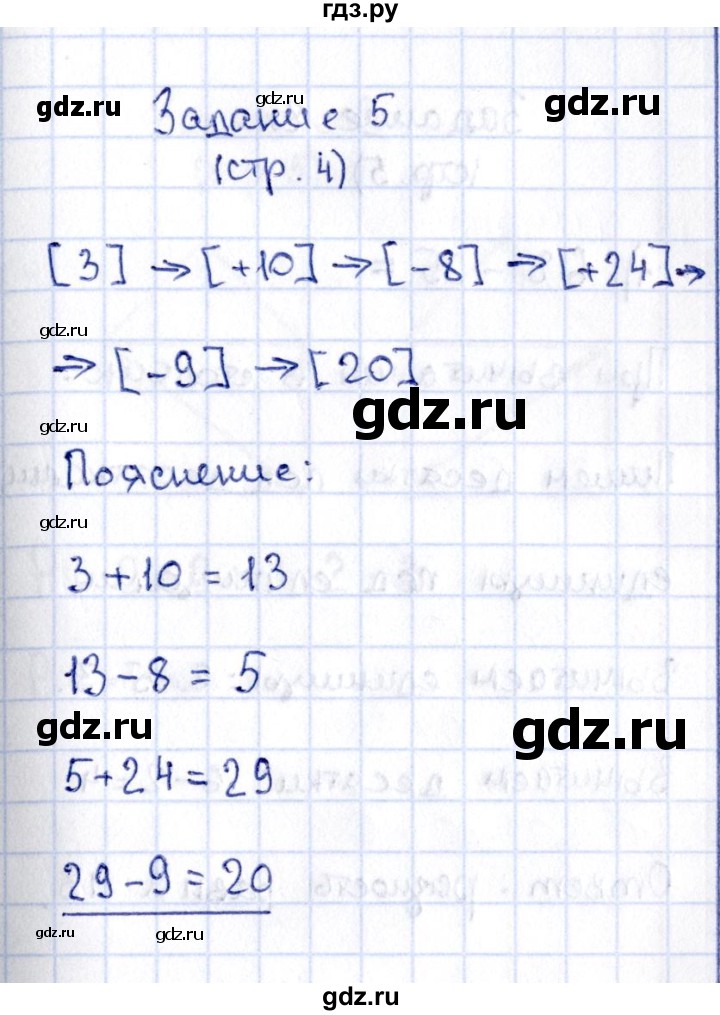 гдз.ру
gdz.ru
gdz.ru
gdz.ru
Задание 5
(стр. 4)
[3] → [+10] → [-8] → [+24] →
gdz.ru
→ [-9] → [20]
gdz.ru
gdz.ru
Пояснение:
gdz.ru
3 + 10 = 13
13 - 8 = 5
gdz.ru
gdz.ru
5 + 24 = 29
29 - 9 = 20
gdz.ru
gdz.ru
gdz.ru